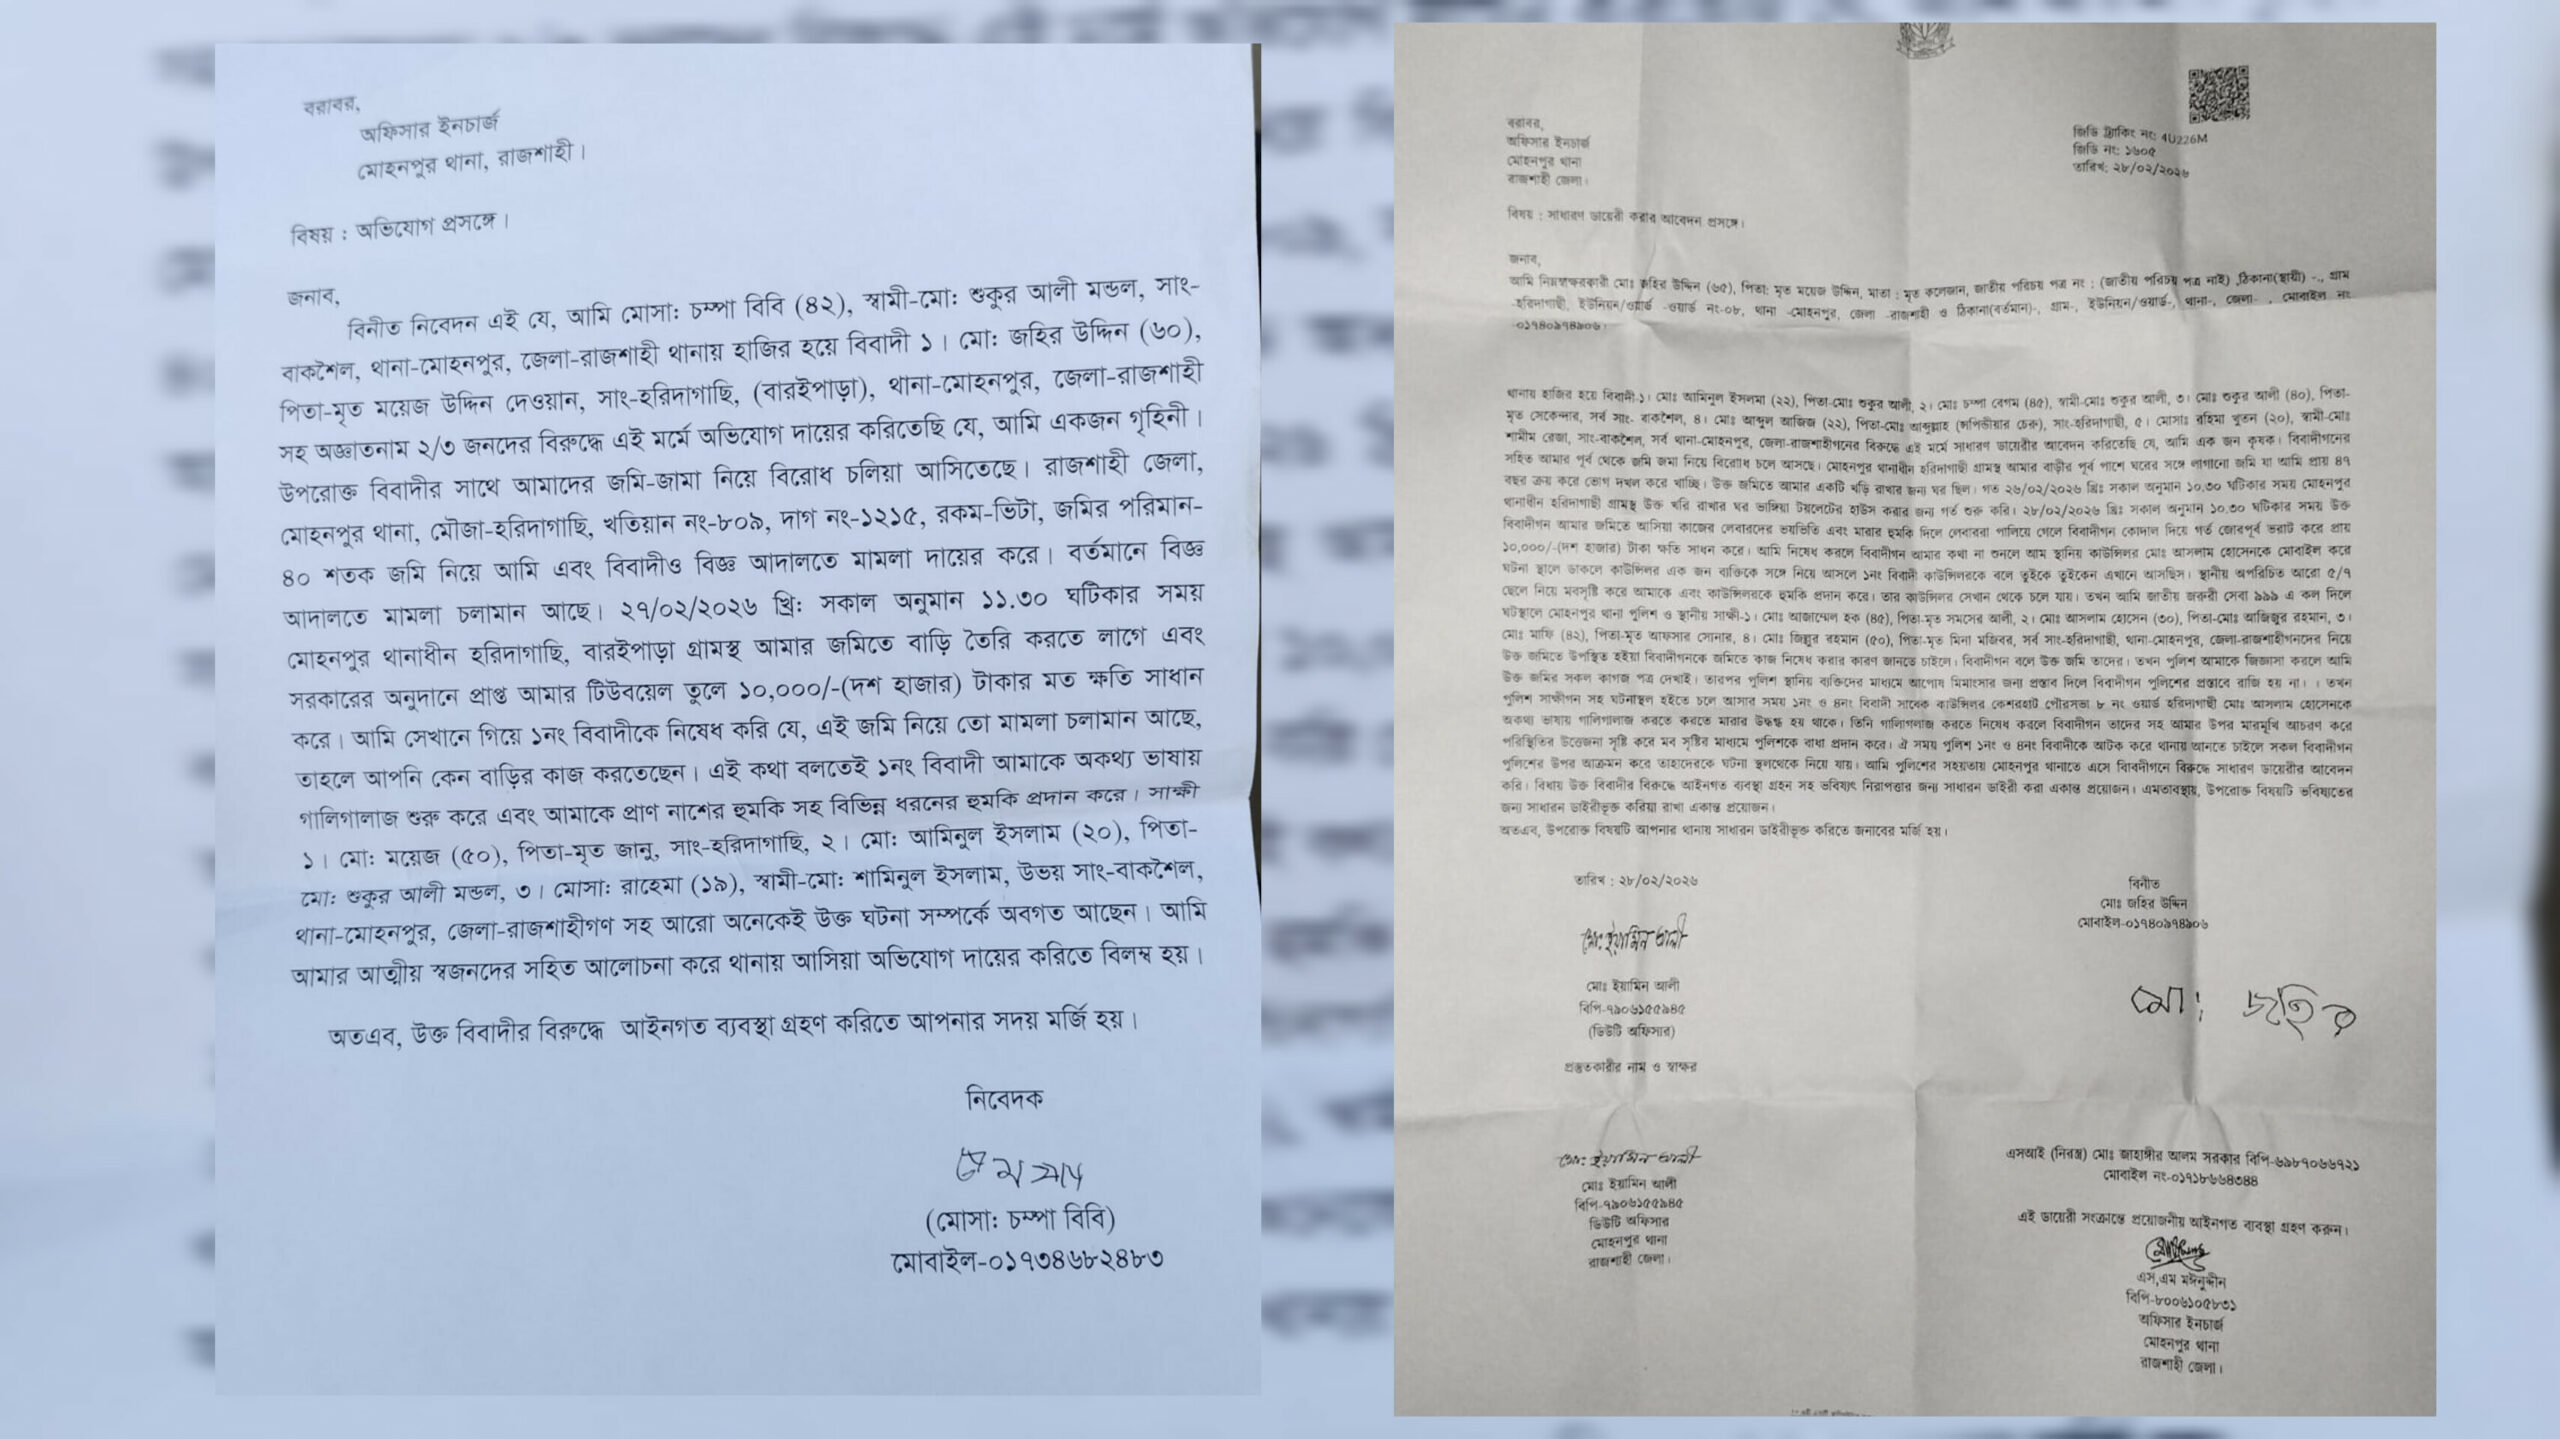 বরাবর,
অফিসার ইনচার্জ
মোহনপুর থানা, রাজশাহী।
বিষয় : অভিযোগ প্রসঙ্গে।
জনাব,
বিনীত নিবেদন এই যে, আমি মোসা: চম্পা বিবি (৪২), স্বামী-মো: শুকুর আলী মন্ডল, সাং-
বাকশৈল, থানা-মোহনপুর, জেলা-রাজশাহী থানায় হাজির হয়ে বিবাদী ১। মো: জহির উদ্দিন (৬০),
পিতা-মৃত ময়েজ উদ্দিন দেওয়ান, সাং-হরিদাগাছি, (বারইপাড়া), থানা-মোহনপুর, জেলা-রাজশাহী
সহ অজ্ঞাতনাম ২/৩ জনদের বিরুদ্ধে এই মর্মে অভিযোগ দায়ের করিতেছি যে, আমি একজন গৃহিনী।
উপরোক্ত বিবাদীর সাথে আমাদের জমি-জামা নিয়ে বিরোধ চলিয়া আসিতেছে। রাজশাহী জেলা,
মোহনপুর থানা, মৌজা-হরিদাগাছি, খতিয়ান নং-৮০৯, দাগ নং-১২১৫, রকম-ভিটা, জমির পরিমান-
৪০ শতক জমি নিয়ে আমি এবং বিবাদীও বিজ্ঞ আদালতে মামলা দায়ের করে। বর্তমানে বিজ্ঞ
আদালতে মামলা চলামান আছে। ২৭/০২/২০২৬ খ্রি: সকাল অনুমান ১১.৩০ ঘটিকার সময়
মোহনপুর থানাধীন হরিদাগাছি, বারইপাড়া গ্রামস্থ আমার জমিতে বাড়ি তৈরি করতে লাগে এবং
সরকারের অনুদানে প্রাপ্ত আমার টিউবয়েল তুলে ১০,০০০/-(দশ হাজার) টাকার মত ক্ষতি সাধান
করে। আমি সেখানে গিয়ে ১নং বিবাদীকে নিষেধ করি যে, এই জমি নিয়ে তো মামলা চলামান আছে,
তাহলে আপনি কেন বাড়ির কাজ করতেছেন। এই কথা বলতেই ১নং বিবাদী আমাকে অকথ্য ভাষায়
গালিগালাজ শুরু করে এবং আমাকে প্রাণ নাশের হুমকি সহ বিভিন্ন ধরনের হুমকি প্রদান করে। সাক্ষী
১। মো: ময়েজ (৫০), পিতা-মৃত জানু, সাং-হরিদাগাছি, ২। মো: আমিনুল ইসলাম (২০), পিতা-
মো: শুকুর আলী মন্ডল, ৩। মোসা: রাহেমা (১৯), স্বামী-মো: শামিনুল ইসলাম, উভয় সাং-বাকশৈল,
থানা-মোহনপুর, জেলা-রাজশাহীগণ সহ আরো অনেকেই উক্ত ঘটনা সম্পর্কে অবগত আছেন। আমি
আমার আত্মীয় স্বজনদের সহিত আলোচনা করে থানায় আসিয়া অভিযোগ দায়ের করিতে বিলম্ব হয়।
অতএব, উক্ত বিবাদীর বিরুদ্ধে আইনগত ব্যবস্থা গ্রহণ করিতে আপনার সদয় মর্জি হয়।
নিবেদক
(মোসা: চম্পা বিবি)
মোবাইল-০১৭৩৪৬৮২৪৮৩
বরাবর,
অফিসার ইনচার্জ
মোহনপুর থানা
রাজশাহী জেলা।
জিডি ট্র্যাকিং নং: 4U226M
জিডি নং: ১৬০৫
তারিখ: ২৮/০২/২০২৬
বিষয় : সাধারণ ডায়েরী করার আবেদন প্রসঙ্গে।
জনাব,
আমি নিম্নস্বাক্ষরকারী মোঃ জহির উদ্দিন (৬৫), পিতা: মৃত ময়েজ উদ্দিন, মাতা : মৃত কলেজান, জাতীয় পরিচয় পত্র নং : (জাতীয় পরিচয় পত্র নাই) ,ঠিকানা(স্থায়ী) -., গ্রাম
-হরিদাগাছী, ইউনিয়ন/ওয়ার্ড -ওয়ার্ড নং-০৮, থানা -মোহনপুর, জেলা -রাজশাহী ও ঠিকানা(বর্তমান)-, গ্রাম-, ইউনিয়ন/ওয়ার্ড-, থানা-, জেলা- , মোবাইল নং
-০১৭৪০৯৭৪৯০৬।
থানায় হাজির হয়ে বিবাদী-১। মোঃ আমিনুল ইসলমা (২২), পিতা-মোঃ শুকুর আলী, ২। মোঃ চম্পা বেগম (৪৫), স্বামী-মোঃ শুকুর আলী, ৩। মোঃ শুকুর আলী (৪০), পিতা-
মৃত সেকেন্দার, সর্ব সাং- বাকশৈল, ৪। মোঃ আব্দুল আজিজ (২২), পিতা-মোঃ আব্দুল্লাহ সাং-হরিদাগাছী, ৫। মোসাঃ রহিমা খুতন (২০), স্বামী-মোঃ
শামীম রেজা, সাং-বাকশৈল, সর্ব থানা-মোহনপুর, জেলা-রাজশাহীগনের বিরুদ্ধে এই মর্মে সাধারণ ডায়েরীর আবেদন করিতেছি যে, আমি এক জন কৃষক। বিবাদীগনের
সহিত আমার পূর্ব থেকে জমি জমা নিয়ে বিরোধি চলে আসছে। মোহনপুর থানাধীন হরিদাগাছী গ্রামস্থ আমার বাড়ীর পূর্ব পাশে ঘরের সঙ্গে লাগানো জমি যা আমি প্রায় ৪৭
বছর ক্রয় করে ভোগ দখল করে খাচ্ছি। উক্ত জমিতে আমার একটি খড়ি রাখার জন্য ঘর ছিল। গত ২৬/০২/২০২৬ খ্রিঃ সকাল অনুমান ১০.৩০ ঘটিকার সময় মোহনপুর
থানাধীন হরিদাগাছী গ্রামস্থ উক্ত খরি রাখার ঘর ভাঙ্গিয়া টয়লেটের হাউস করার জন্য গর্ত শুরু করি। ২৮/০২/২০২৬ খ্রিঃ সকাল অনুমান ১০.৩০ ঘটিকার সময় উক্ত
বিবাদীগন আমার জমিতে আসিয়া কাজের লেবারদের ভয়ভিতি এবং মারার হুমকি দিলে লেবাররা পালিয়ে গেলে বিবাদীগন কোদাল দিয়ে গর্ত জোরপূর্ব ভরাট করে প্রায়
১০,০০০/-(দশ হাজার) টাকা ক্ষতি সাধন করে। আমি নিষেধ করলে বিবাদীগন আমার কথা না শুনলে আম স্থানিয় কাউন্সিলর মোঃ আসলাম হোসেনকে মোবাইল করে
ঘটনা স্থালে ডাকলে কাউন্সিলর এক জন ব্যক্তিকে সঙ্গে নিয়ে আসলে ১নং বিবাদী কাউন্সিলরকে বলে তুইকে তুইকেন এখানে আসছিস। স্থানীয় অপরিচিত আরো ৫/৭
ছেলে নিয়ে মবসৃষ্টি করে আমাকে এবং কাউন্সিলরকে হুমকি প্রদান করে। তার কাউন্সিলর সেখান থেকে চলে যায়। তখন আমি জাতীয় জরুরী সেবা ৯৯৯ এ কল দিলে
ঘটস্থালে মোহনপুর থানা পুলিশ ও স্থানীয় সাক্ষী-১। মোঃ আজাম্মেল হক (৪৫), পিতা-মৃত সমসের আলী, ২। মোঃ আসলাম হোসেন (৩০), পিতা-মোঃ আজিজুর রহমান, ৩।
মোঃ মাফি (৪২), পিতা-মৃত আফসার সোনার, ৪। মোঃ জিল্লুর রহমান (৫০), পিতা-মৃত মিনা মজিবর, সর্ব সাং-হরিদাগাছী, থানা-মোহনপুর, জেলা-রাজশাহীগনদের নিয়ে
উক্ত জমিতে উপস্থিত হইয়া বিবাদীগনকে জমিতে কাজ নিষেধ করার কারণ জানতে চাইলে। বিবাদীগন বলে উক্ত জমি তাদের। তখন পুলিশ আমাকে জিজ্ঞাসা করলে আমি
উক্ত জমির সকল কাগজ পত্র দেখাই। তারপর পুলিশ স্থানিয় ব্যক্তিদের মাধ্যমে আপোষ মিমাংসার জন্য প্রস্তাব দিলে বিবাদীগন পুলিশের প্রস্তাবে রাজি হয় না। । তখন
পুলিশ সাক্ষীগন সহ ঘটনাস্থল হইতে চলে আসার সময় ১নং ও ৪নং বিবাদী সাবেক কাউন্সিলর কেশরহাট পৌরসভা ৮ নং ওয়ার্ড হরিদাগাছী মোঃ আসলাম হোসেনকে
অকথ্য ভাষায় গালিগালাজ করতে করতে মারার উদ্ধত্ত হয় থাকে। তিনি গালিগলাজ করতে নিষেধ করলে বিবাদীগন তাদের সহ আমার উপর মারমূখি আচরণ করে
পরিস্থিতির উত্তেজনা সৃষ্টি করে মব সৃষ্টির মাধ্যমে পুলিশকে বাধা প্রদান করে। ঐ সময় পুলিশ ১নং ও ৪নং বিবাদীকে আটক করে থানায় আনতে চাইলে সকল বিবাদীগন
পুলিশের উপর আক্রমন করে তাহাদেরকে ঘটনা স্থলথেকে নিয়ে যায়। আমি পুলিশের সহয়তায় মোহনপুর থানাতে এসে বিাবদীগনে বিরুদ্ধে সাধারণ ডায়েরীর আবেদন
করি। বিধায় উক্ত বিবাদীর বিরুদ্ধে আইনগত ব্যবস্থা গ্রহন সহ ভবিষ্যৎ নিরাপত্তার জন্য সাধারন ডাইরী করা একান্ত প্রয়োজন। এমতাবস্থায়, উপরোক্ত বিষয়টি ভবিষ্যতের
জন্য সাধারন ডাইরীভূক্ত করিয়া রাখা একান্ত প্রয়োজন।
অতএব, উপরোক্ত বিষয়টি আপনার থানায় সাধারন ডাইরীভূক্ত করিতে জনাবের মর্জি হয়।
তারিখ : ২৮/০২/২০২৬
মোঃ ইয়ামিন আলী
মোঃ ইয়ামিন আলী
বিপি-৭৯০৬১৫৫৯৪৫
(ডিউটি অফিসার)
প্রস্তুতকারীর নাম ও স্বাক্ষর
বিনীত
মোঃ জহির উদ্দিন
মোবাইল-০১৭৪০৯৭৪৯০৬
মো: জহির
মো: ইয়ামিন আলী
মোঃ ইয়ামিন আলী
বিপি-৭৯০৬১৫৫৯৪৫
ডিউটি অফিসার
মোহনপুর থানা
রাজশাহী জেলা।
এসআই (নিরস্ত্র) মোঃ জাহাঙ্গীর আলম সরকার বিপি-৬৯৮৭০৬৬৭২১
মোবাইল নং-০১৭১৮৬৬৪৩৪৪
এই ডায়েরী সংক্রান্তে প্রয়োজনীয় আইনগত ব্যবস্থা গ্রহণ করুন।
এস,এম মঈনুদ্দীন
বিপি-৮০০৬১০৫৮৩১
অফিসার ইনচার্জ
মোহনপুর থানা
রাজশাহী জেলা।